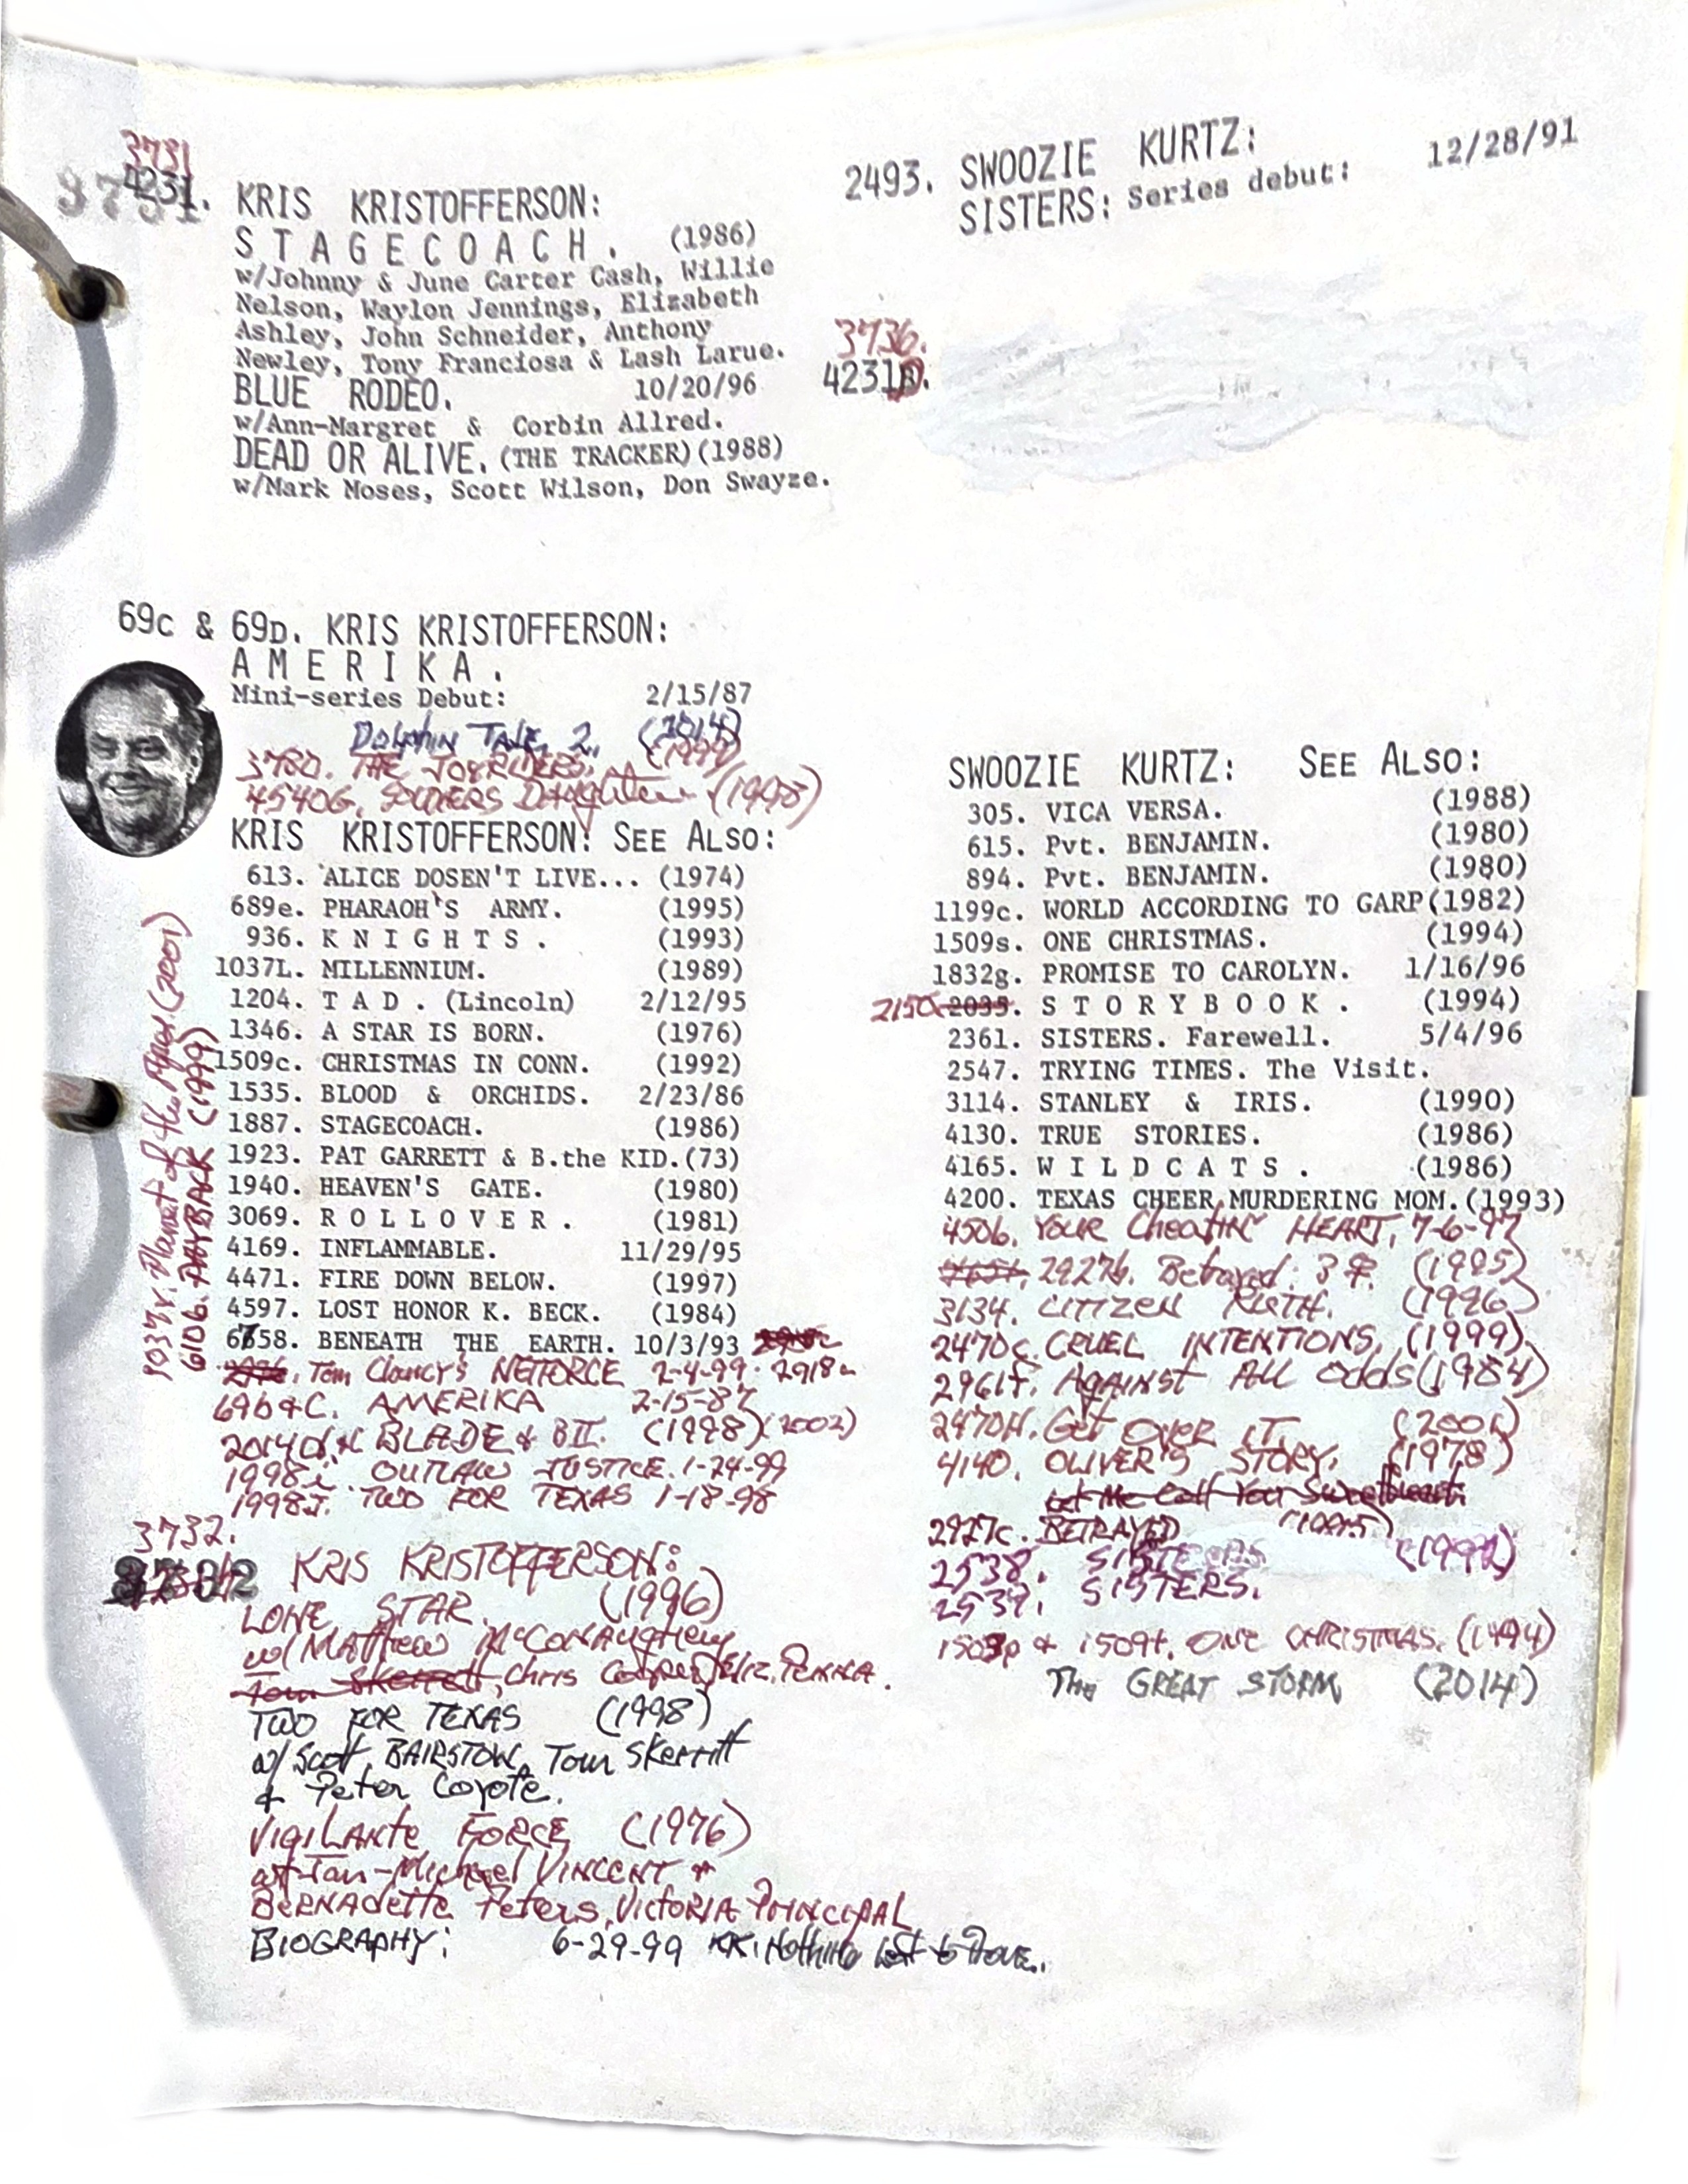 3731
4231. KRIS KRISTOFFERSON:
STAGECOACH. (1986)
w/Johnny & June Carter Cash, Willie
Nelson, Waylon Jennings, Elizabeth
Ashley, John Schneider, Anthony
Newley, Tony Franciosa & Lash Larue.
BLUE RODEO. 10/20/96
w/Ann-Margret & Corbin Allred.
DEAD OR ALIVE. (THE TRACKER)(1988)
w/Mark Moses, Scott Wilson, Don Swayze.
69c & 69D. KRIS KRISTOFFERSON:
AMERIKA.
Mini-series Debut: 2/15/87
DOLPHIN TALE 2. (2014)
3780. THE JOYRIDERS. (1999)
4540G. SOLDIERS Daughter (1998)
KRIS KRISTOFFERSON: SEE ALSO:
613. ALICE DOSEN'T LIVE... (1974)
689e. PHARAOH'S ARMY. (1995)
936. KNIGHTS. (1993)
1037L. MILLENNIUM. (1989)
1204. TAD. (Lincoln) 2/12/95
1346. A STAR IS BORN. (1976)
1509c. CHRISTMAS IN CONN. (1992)
1535. BLOOD & ORCHIDS. 2/23/86
1887. STAGECOACH. (1986)
1923. PAT GARRETT & B.the KID.(73)
1940. HEAVEN'S GATE. (1980)
3069. ROLLOVER. (1981)
4169. INFLAMMABLE. 11/29/95
4471. FIRE DOWN BELOW. (1997)
4597. LOST HONOR K. BECK. (1984)
6758. BENEATH THE EARTH. 10/3/93
Tom Clancy's NETFORCE 2-4-99. 2918
69b&C. AMERIKA 2-15-87
BLADE & BII. (1998)(2002)
1998i. OUTLAW JUSTICE. 1-24-99
1998J. TWO FOR TEXAS 1-18-98
Planet of the Apes (2001)
6106. PAYBACK (1999)
3732.
KRIS KRISTOFFERSON:
LONE STAR. (1996)
w/ Matthew McConaughey
Tom Skerritt, Chris Cooper, Eliz. PENNA.
TWO FOR TEXAS (1998)
w/ Scott BAIRSTOW, Tom Skerritt
& Peter Coyote.
VIGILANTE FORCE (1976)
w/ Jan-Michael VINCENT &
BERNADETTE Peters, VICTORIA PRINCIPAL
BIOGRAPHY: 6-29-99 KK: Nothing Left to Prove.
2493. SWOOZIE KURTZ: 12/28/91
SISTERS: Series debut:
3736.
4231D.
SWOOZIE KURTZ: SEE ALSO:
305. VICA VERSA. (1988)
615. Pvt. BENJAMIN. (1980)
894. Pvt. BENJAMIN. (1980)
1199c. WORLD ACCORDING TO GARP(1982)
1509s. ONE CHRISTMAS. (1994)
1832g. PROMISE TO CAROLYN. 1/16/96
2150 2035. STORYBOOK. (1994)
2361. SISTERS. Farewell. 5/4/96
2547. TRYING TIMES. The Visit.
3114. STANLEY & IRIS. (1990)
4130. TRUE STORIES. (1986)
4165. WILDCATS. (1986)
4200. TEXAS CHEER MURDERING MOM.(1993)
4506. YOUR Cheatin' HEART. 7-6-97
2927b. Betrayed: 3 (1995)
3134. CITIZEN RUTH. (1996)
2470c. CRUEL INTENTIONS. (1999)
2961f. AGAINST All Odds (1984)
2470H. Get OVER IT. (2001)
4140. OLIVER'S STORY. (1978)
Let Me Call You Sweetheart.
2927c. BETRAYED (1995)
2538. SISTERS (1991)
2539. SISTERS.
1509p & 1509t. ONE CHRISTMAS. (1994)
The GREAT STORM (2014)